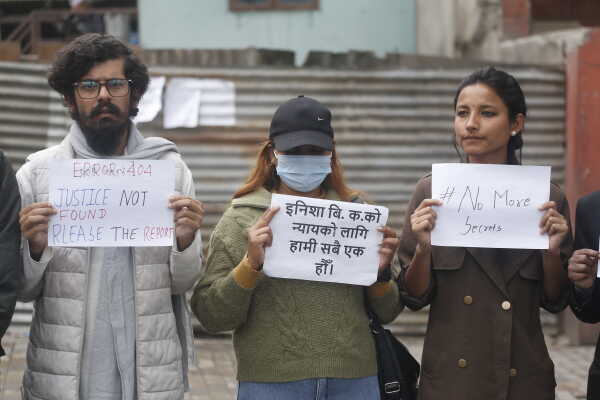 ERROR: 404
JUSTICE NOT
FOUND
RLEASE THE REPORT
इनिशा बि. क.को
न्यायको लागि
हामी सबै एक
हौँ।
# No More
Secrets